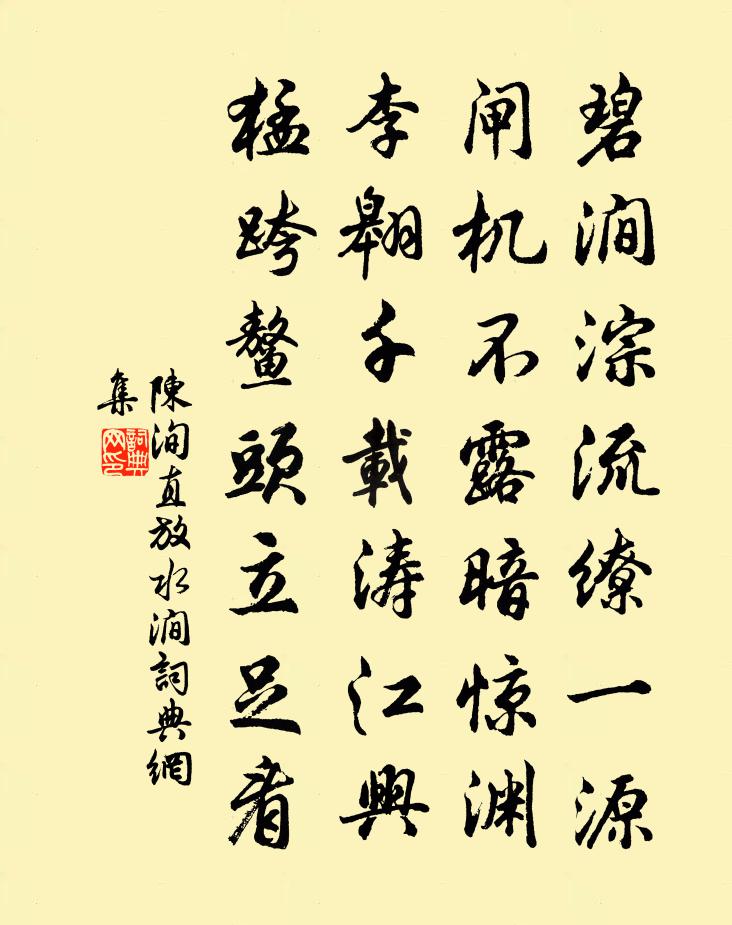 碧涧淙流缭一源
闸机不露暗惊渊
李翱千載涛江興
猛跨鳌頭立足看
陳洵直放水涧詞典網
集
詞典网印